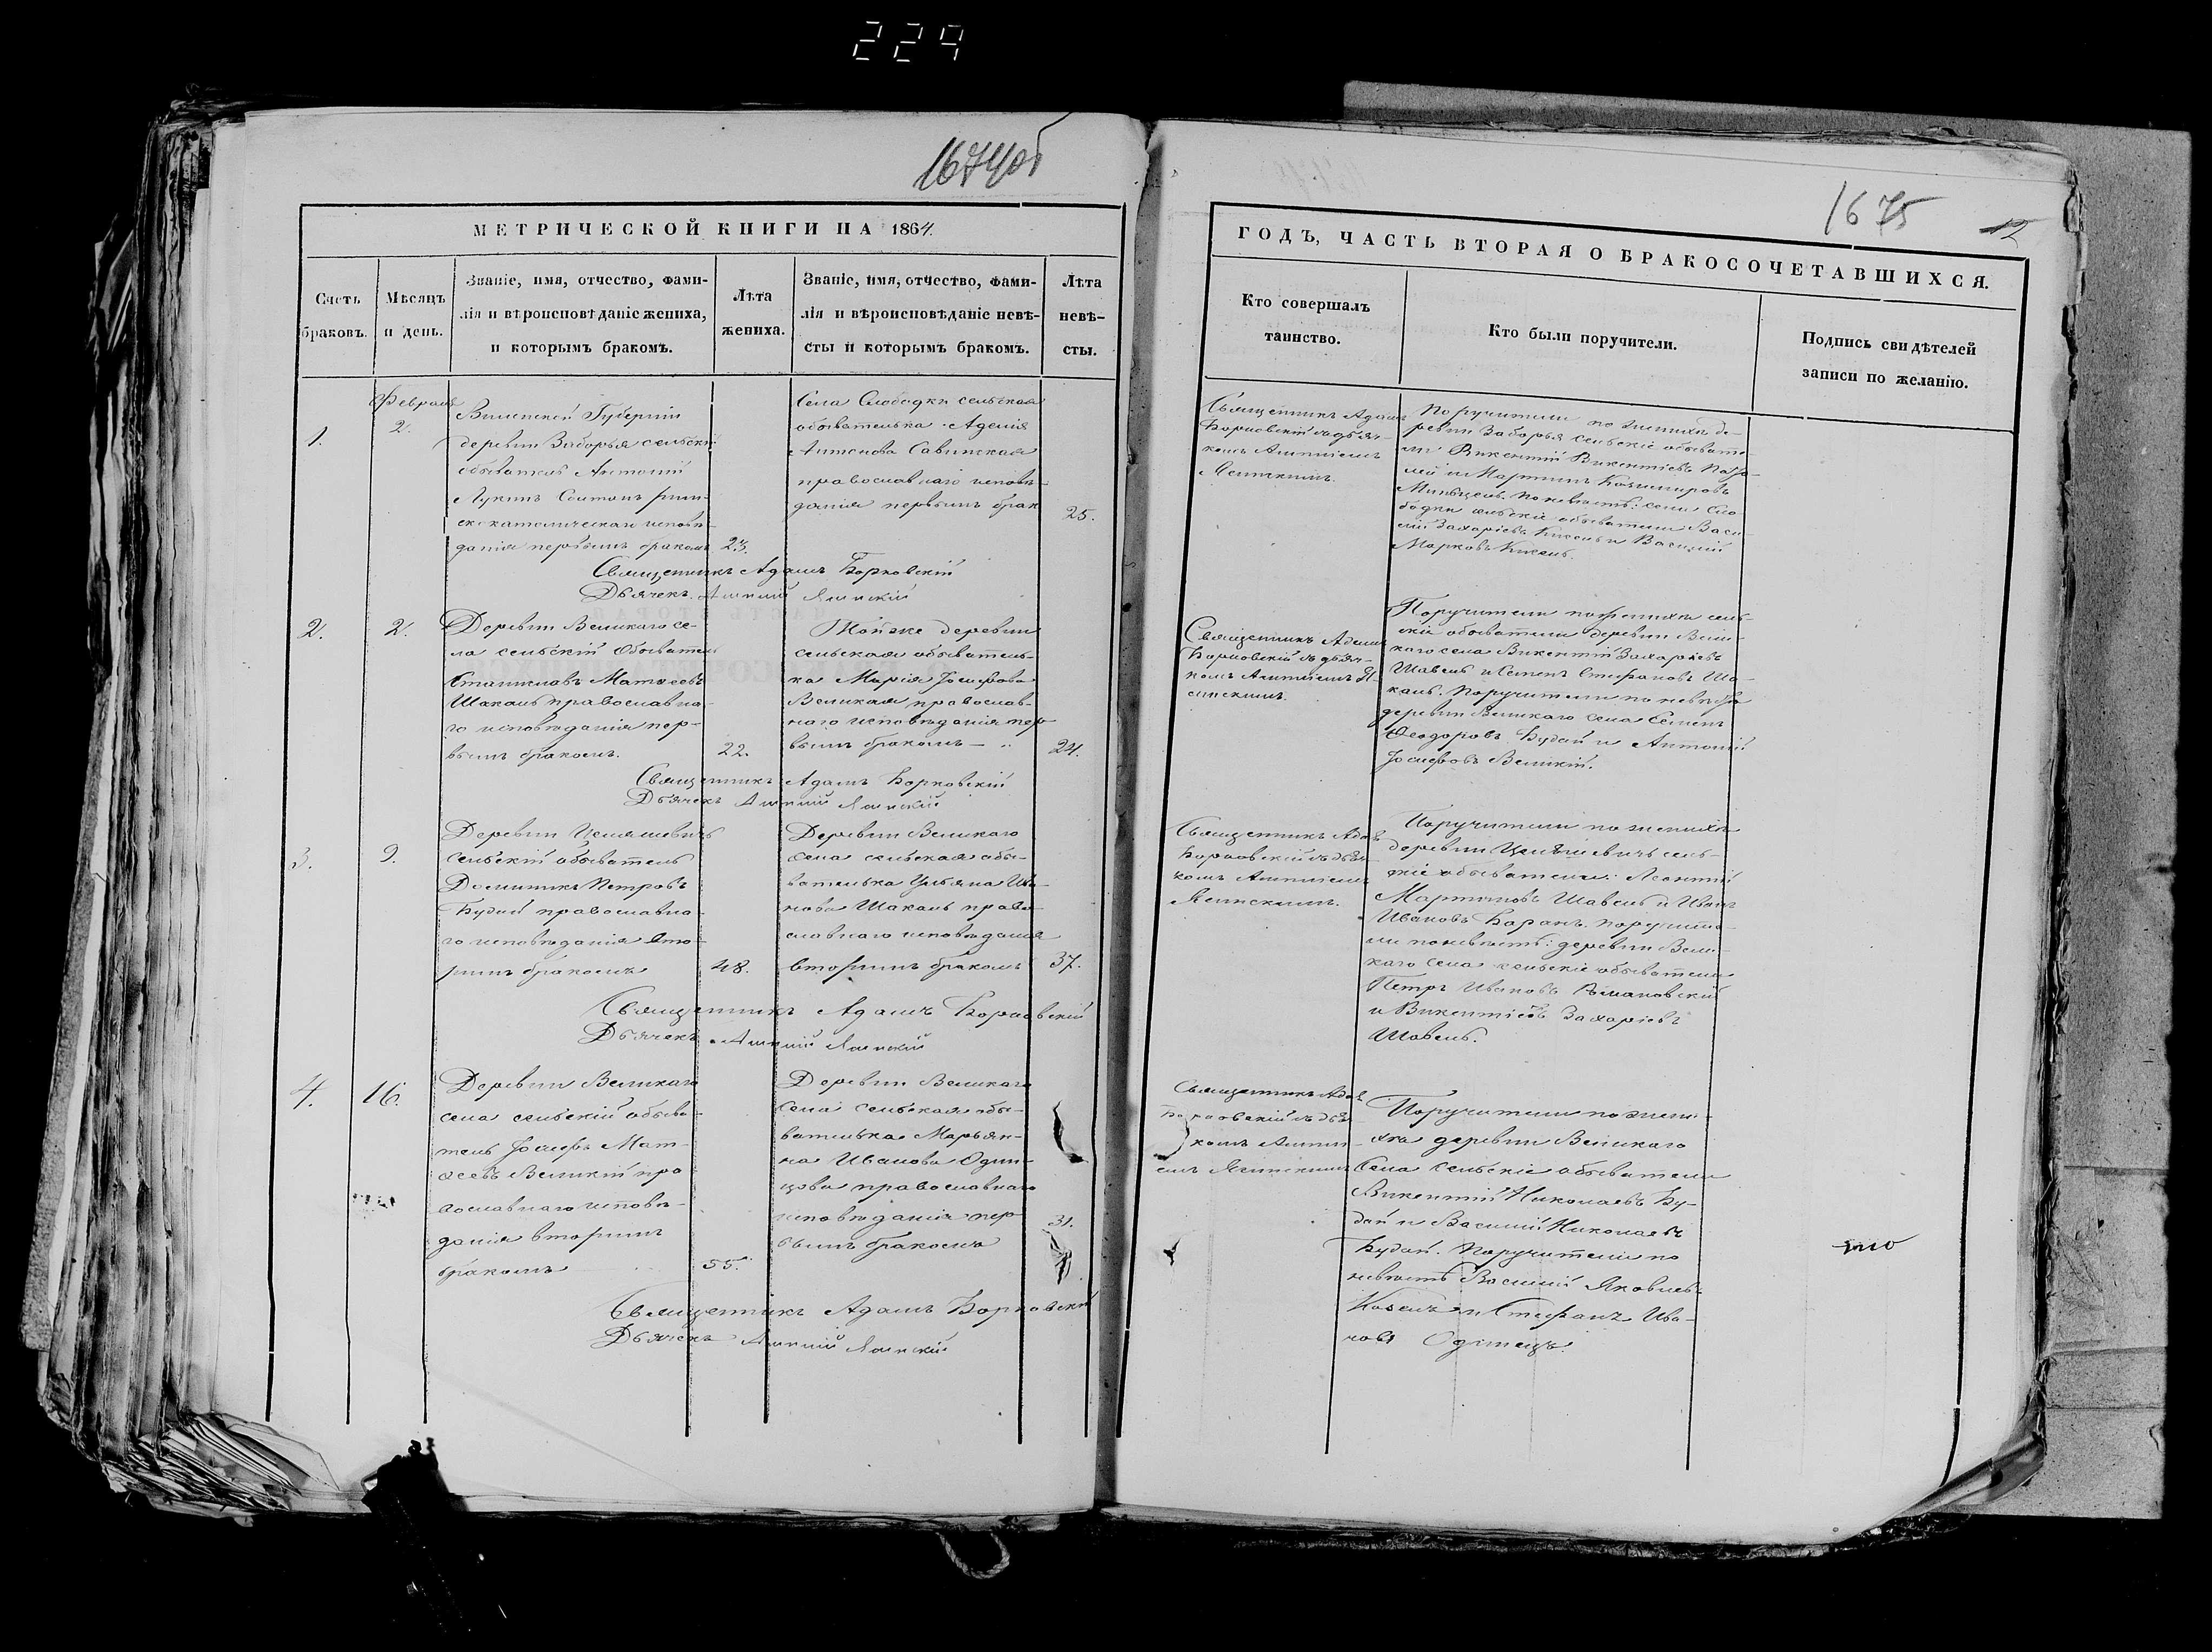 229
1674об
МЕТРИЧЕСКОЙ КНИГИ НА 1864.
Счетъ браковъ.
Мѣсяцъ и день.
Званіе, имя, отчество, фами-
лія и вѣроисповѣданіе жениха,
и которымъ бракомъ.
Лѣта
жениха.
Званіе, имя, отчество, фами-
лія и вѣроисповѣданіе невѣ-
сты и которымъ бракомъ.
Лѣта
невѣ-
сты.
1.
Февраль
2.
Виленской Губерніи
деревни Заборья сельскій
обыватель Антоній
Лукинъ рим-
скокатолическаго исповѣ-
данія первымъ бракомъ
23.
Села Слободки сельская
обывателька Аделія
Антонова Савинская
православнаго исповѣ-
данія первымъ брак
25.
Священникъ Адамъ Борковскій
Дьячекъ
2.
2.
Деревни Великаго се-
ла сельскій обыватель
Станиславъ Матѳеевъ
Шакаль православна-
го исповѣданія пер-
вымъ бракомъ.
22.
Тойже деревни
сельская обыватель-
ка Марія Іосифова
Великая православ-
наго исповѣданія пер-
вымъ бракомъ
24.
Священникъ Адамъ Борковскій
Дьячекъ
3.
9.
Деревни
сельскій обыватель
Доминикъ Петровъ
Будай православна-
го исповѣданія вто-
рымъ бракомъ
48.
Деревни Великаго
села сельская обы-
вателька Ульяна Ива-
нова Шакаль право-
славнаго исповѣданія
вторымъ бракомъ
37.
Священникъ Адамъ Борковскій
Дьячекъ
4.
16.
Деревни Великаго
села сельскій обыва-
тель Іосифъ Мат-
ѳеевъ Великій пра
вославнаго исповѣ-
данія вторымъ
бракомъ
55.
Деревни Великаго
села сельская обы-
вателька Марьян-
на Иванова Один-
цова православнаго
исповѣданія пер-
вымъ бракомъ
31.
Священникъ Адамъ Борковскій
Дьячекъ
1675
12
ГОДЪ, ЧАСТЬ ВТОРАЯ О БРАКОСОЧЕТАВШИХСЯ.
Кто совершалъ
таинство.
Кто были поручители.
Подпись свидѣтелей
записи по желанію.
Священникъ Адамъ
Борковскій съ дьяч-
комъ
Поручители по женихѣ де-
ревни Заборья сельскіе обывате
ли Викентій Викентіевъ
и Мартинъ Казимировъ
по невѣстѣ: села Сло-
бодки сельскіе обыватели Васи-
лій Захаріевъ Кисель и Василій
Марковъ Кисель.
Священникъ Адамъ
Борковскій съ дьяч-
комъ
Поручители по женихѣ сель-
скіе обыватели деревни Вели-
каго села Викентій Захаріевъ
Шавель и Семенъ Стефановъ Ша-
каль. Поручители по невѣстѣ
деревни Великаго села Семенъ
Ѳеодоровъ Будай и Антоній
Іосифовъ Великій.
Священникъ Адамъ
Борковскій съ дьяч-
комъ
Поручители по женихѣ
деревни сель-
скіе обыватели: Леонтій
Мартиновъ Шавель и Иванъ
Ивановъ Баранъ. поручите-
ли по невѣстѣ: деревни Вели-
каго села сельскіе обыватели
Петръ Ивановъ Романовскій
и Викентій Захаріевъ
Шавель.
Священникъ Адамъ
Борковскій съ дьяч-
комъ
Поручители по жени-
ха деревни Великаго
Села сельскіе обыватели
Викентій Николаевъ Бу-
дай и Василій Николаевъ
Будай. Поручители по
невѣстѣ Василій Яковлевъ
и Стефанъ Ива-
новъ Одинецъ.